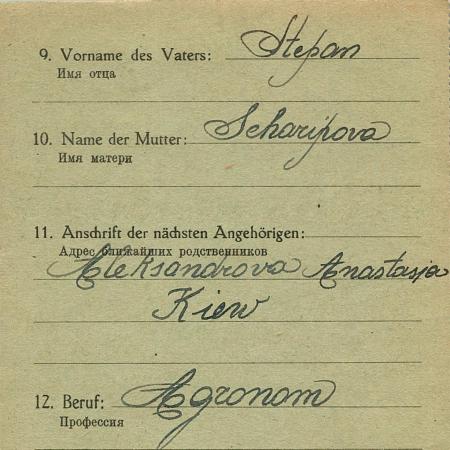 9. Vorname des Vaters: Stepan
Имя отца
10. Name der Mutter: Scharipova
Имя матери
11. Anschrift der nächsten Angehörigen:
Адрес ближайших родственников
Aleksandrova Anastasja
Kiew
12. Beruf: Agronom
Профессия